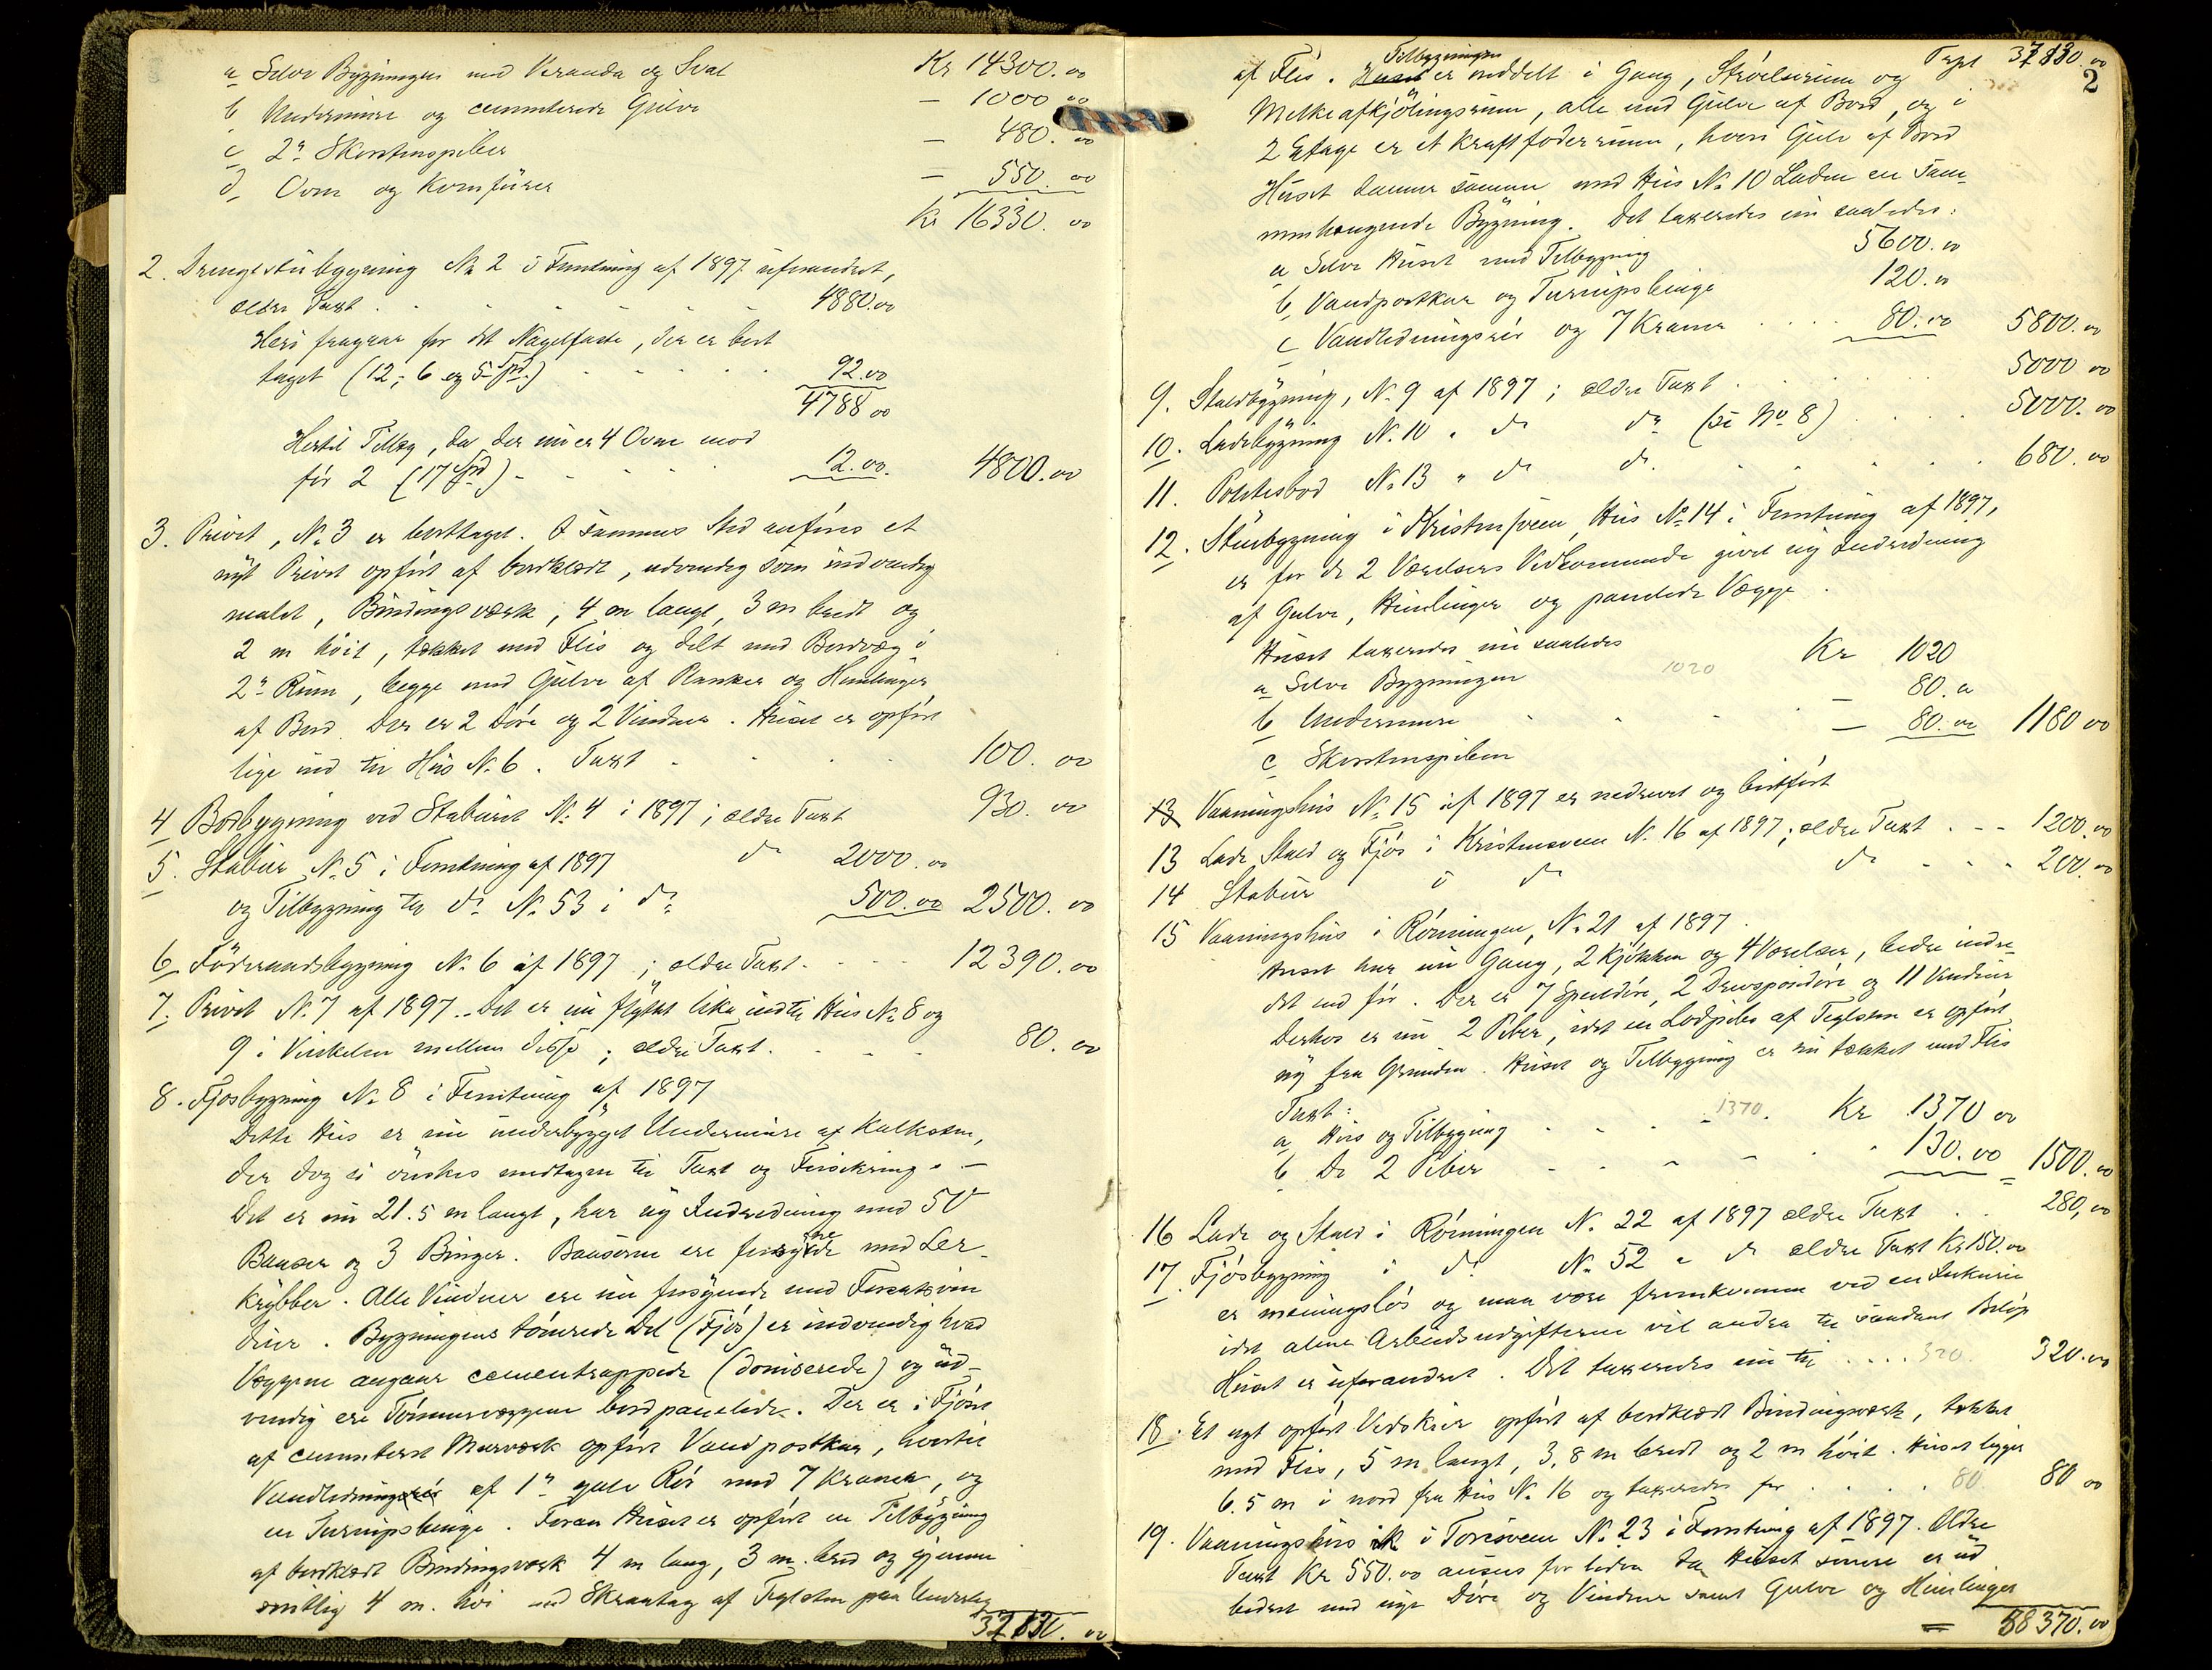 a Selve Bygningen med Veranda og Sval Kr 14300.00
b Undermure og cementerede Gulve — 1000 00
c 2de Skorstenspiber — 480. 00
d Ovne og Komfurer — 550. 00
Kr 16330. 00
2. Drengestubygning No 2 i Forretning af 1897 uforandret,
ældre Taxt . 4880.00
Heri fragaar for det Nagelfaste, der er bort
taget (12; 6 og 5 Spd.) 92.00
4788 00
Hertil Tillæg, da der nu er 4 Ovne mod
før 2 (17 Spd) - 12.00. 4800.00
3. Privet, No 3 er borttaget. I sammes Sted anføres et
nyt Privet opført af bordklædt, udvendig som indvendig
malet, Bindingsværk, 4 m langt, 3 m bredt og
2 m høit, tækket med Flis og delt med Bordvæg i
2de Rum, begge med Gulve af Planker og Himlinger
af Bord. Der er 2 Døre og 2 Vinduer. Huset er opført
lige ind til Hus No 6. Taxt 100. 00
4 Bodbygning ved Staburet No 4 i 1897; ældre Taxt 930. 00
5. Stabur No 5 i Forretning af 1897 do 2000. 00
og Tilbygning til do No 53 i do 500.00 2500. 00
6 Föderaadsbygning No 6 af 1897; ældre Taxt. 12390.00
7. Privet No 7 af 1897. Det er nu flyttet like indtil Hus No 8 og
9 i Vinkelen mellem disse; ældre Taxt. 80. 00
8. Fjosbygning No 8 i Forretning af 1897
Dette Hus er nu underbygget Undermure af Kalksten,
der dog ei ønskes medtagen til Taxt og Forsikring. —
Det er nu 21.5 m langt, har ny Indredning med 50
Baaser og 3 Binger. Baaserne ere forsynede med Ler-
krybber. Alle Vinduer ere nu forsynede med Forsatsvin
duer. Bygningens tømrede Del (Fjøs) er indvendig hvad
Væggene angaar cementrappede (doniserede) og ud-
vendig ere Tømmervæggene bordpanelede. Der er i Fjøset
af cementeret Murværk opført Vandpostkar, hvortil
Vandledning af 1" galv Rör med 7 Kraner, og
en Turnipsbinge. Foran Huset er opført en Tilbygning
af bordklædt Bindingsværk 4 m lang, 3 m. bred og gjennem
snitlig 4 m. høi med Skraatag af Teglsten paa Underlag
37130. 00
2
af Flis. Tilbygningen er inddelt i Gang, Strøelserum og Taxt 37130.00
Melkeafkjölingsrum, alle med Gulve af Bord, og i
2 Etage er et Kraftfoderrum, hvori Gulv af Bord
Huset danner sammen med Hus No 10 Laden en Sam-
menhængende Bygning. Det taxeredes nu saaledes:
a Selve Huset med Tilbygning 5600.00
b Vandpostkar og Turnipsbinge 120.00
c Vandledningsrör og 7 Kraner 80.00 5800.00
9. Staldbygning, No 9 af 1897; ældre Taxt 5000 00
10. Ladebygning No 10 " do do (se No 8) 5000. 00
11. Potetesbod No 13 " do do. 680. 00
12. Stuebygning i Kristensveen, Hus No 14 i Forretning af 1897,
er for de 2 Værelsers Vedkommende givet ny Indredning
af Gulve, Himlinger og panelede Vægge.
Huset taxeredes nu saaledes
a Selve Bygningen 1020 Kr 1020
b Undermure — 80.00
c Skorstenspiben — 80.00 1180 00
13 Vaaningshus No 15 af 1897 er nedrevet og bortført
13 Lade Stald og Fjøs i Kristensveen No 16 af 1897; ældre Taxt - - 1200.00
14 Stabur i do do - - - 200.00
15 Vaaningshus i Rønningen, No 21 af 1897.
Huset har nu Gang, 2 Kjøkken og 4 Værelser, bedre indre-
det end før. Der er 7 Speildøre, 2 Drevspondøre og 11 Vinduer
Derhos er nu 2 Piber, idet en Lodpibe af Teglsten er opført
ny fra Grunden. Huset og Tilbygning er nu tækket med Flis
Taxt:
a Hus og Tilbygning 1370. Kr 1370 00
b De 2 Piber 130.00 1500.00
16 Lade og Stald i Rønningen No. 22 af 1897 ældre Taxt 280,00
17. Fjøsbygning i do No 52 " do ældre Taxt Kr 150.00
er meningsløs og maa være fremkommen ved en Inkurie
idet alene Arbeidsudgifterne vil andra til saadant Beløp
Huset er uforandret. Det taxeredes nu til .... 320. 320.00
18. Et nyt opført Vedskur opført af bordklædt Bindingsværk, tækket
med Flis, 5 m langt, 3,8 m bredt og 2 m høit. Huset ligger
6.5 m i nord fra Hus No 16 og taxeredes for 80 80 00
19. Vaaningshus i Toresveen No. 23 i Forretning af 1897. Ældre
Taxt Kr 550.00 ansees for liden da Huset senere er ud
bedret med nye Døre og Vinduer samt Gulve og Himlinger
= 58370.00